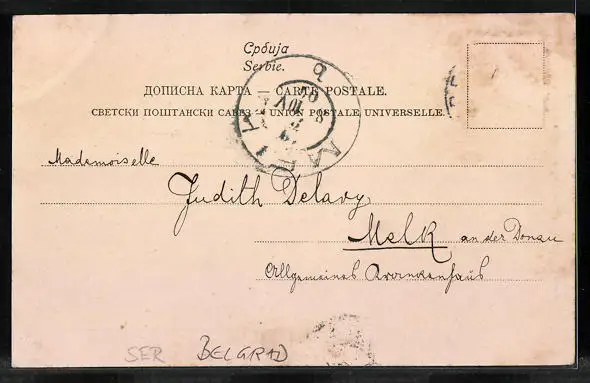 Србија
Serbie.
ДОПИСНА КАРТА — CARTE POSTALE.
СВЕТСКИ ПОШТАНСКИ САВЕЗ — UNION POSTALE UNIVERSELLE.
Mademoiselle
Judith Delavy
Melk an der Donau
Allgemeines Krankenhaus
SER BELGRAD